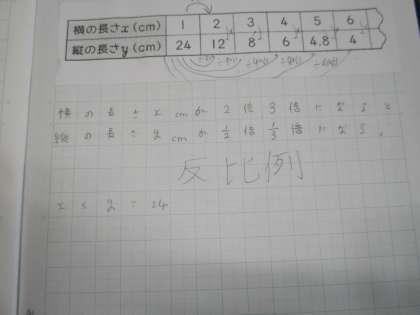 横の長さx(cm) 1 2 3 4 5 6
縦の長さy(cm) 24 12 8 6 4.8 4
横の長さxcmが2倍3倍になると
縦の長さycmが1/2倍1/3倍になる。
反比例
x×y=24